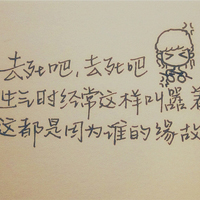 去死吧,去死吧
生气时经常这样叫嚣着
这都是因为谁的缘故